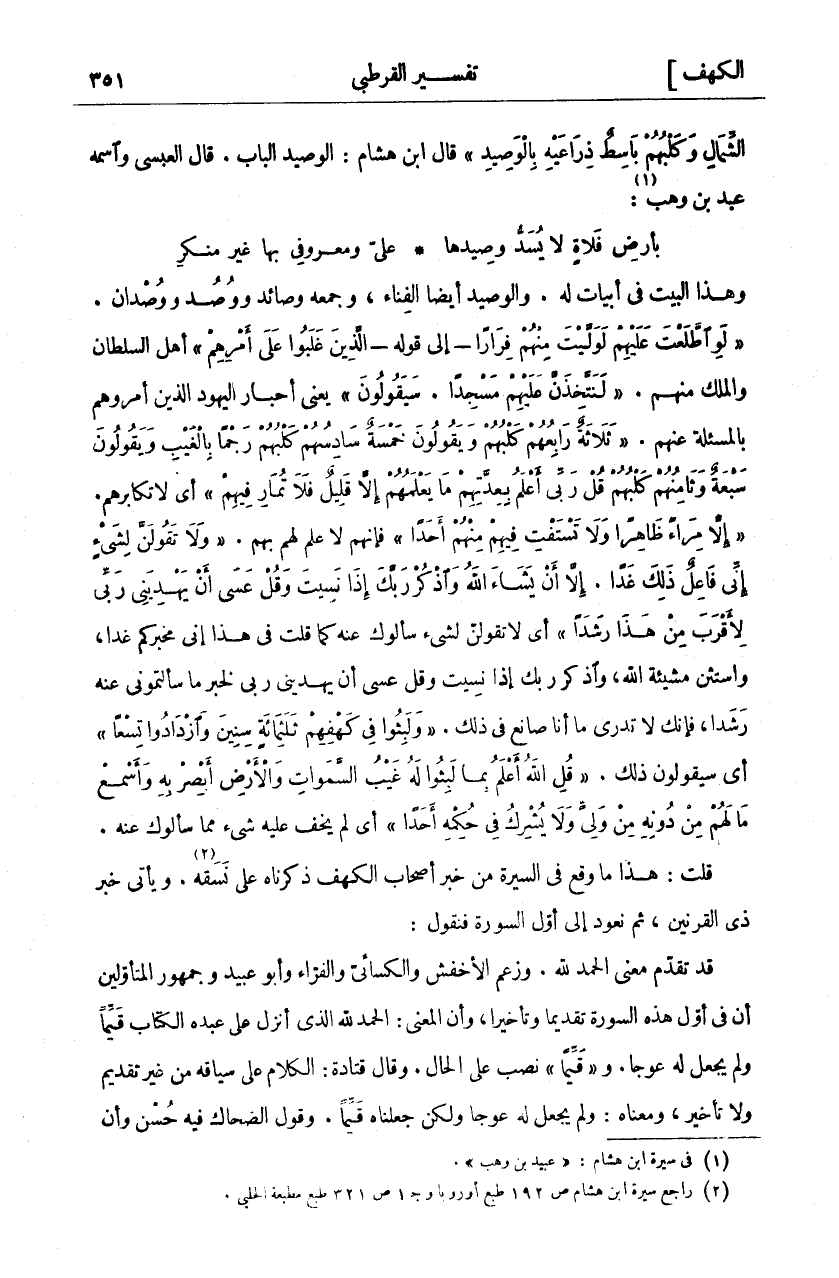 الكهف ] تفسير القرطبى ٣٥١
الشِّمَالِ وَكَلْبُهُمْ بَاسِطٌ ذِرَاعَيْهِ بِالْوَصِيدِ » قال ابن هشام : الوصيد الباب . قال العبسى وآسمه
عبد بن وهب (١) :
بأرضِ فَلاةٍ لا يُسَدُّ وصِيدها * علىّ ومعروفى بها غير منكرِ
وهذا البيت فى أبيات له . والوصيد أيضا الفِناء ، وجمعه وصائد ووُصُد ووُصْدان .
« لَوِ ٱطَّلَعْتَ عَلَيْهِمْ لَوَلَّيْتَ مِنْهُمْ فِرَارًا — إلى قوله — الَّذِينَ غَلَبُوا عَلَى أَمْرِهِمْ » أهل السلطان
والملك منهم . « لَنَتَّخِذَنَّ عَلَيْهِمْ مَسْجِدًا . سَيَقُولُونَ » يعنى أحبار اليهود الذين أمروهم
بالمسئلة عنهم . « ثَلَاثَةٌ رَابِعُهُمْ كَلْبُهُمْ وَيَقُولُونَ خَمْسَةٌ سَادِسُهُمْ كَلْبُهُمْ رَجْمًا بِالْغَيْبِ وَيَقُولُونَ
سَبْعَةٌ وَثَامِنُهُمْ كَلْبُهُمْ قُلْ رَبِّى أَعْلَمُ بِعِدَّتِهِمْ مَا يَعْلَمُهُمْ إِلَّا قَلِيلٌ فَلَا تُمَارِ فِيهِمْ » أى لا تكابرهم.
« إِلَّا مِرَاءً ظَاهِرًا وَلَا تَسْتَفْتِ فِيهِمْ مِنْهُمْ أَحَدًا » فإنهم لا علم لهم بهم . « وَلَا تَقُولَنَّ لِشَىْءٍ
إِنِّى فَاعِلٌ ذَلِكَ غَدًا . إِلَّا أَنْ يَشَاءَ اللهُ وَٱذْكُرْ رَبَّكَ إِذَا نَسِيتَ وَقُلْ عَسَى أَنْ يَهْدِيَنِى رَبِّى
لِأَقْرَبَ مِنْ هَذَا رَشَدًا » أى لا تقولنّ لشىء سألوك عنه كما قلت فى هذا إنى مخبركم غدا،
واستثن مشيئة الله، وٱذكر ربك إذا نسيت وقل عسى أن يهدينى ربى لخبر ما سألتمونى عنه
رَشَدا، فإنك لا تدرى ما أنا صانع فى ذلك . « وَلَبِثُوا فِى كَهْفِهِمْ ثَلَثِمِائَةٍ سِنِينَ وَٱزْدَادُوا تِسْعًا »
أى سيقولون ذلك . « قُلِ اللهُ أَعْلَمُ بِمَا لَبِثُوا لَهُ غَيْبُ السَّمَوَاتِ وَالْأَرْضِ أَبْصِرْ بِهِ وَأَسْمِعْ
مَا لَهُمْ مِنْ دُونِهِ مِنْ وَلِىٍّ وَلَا يُشْرِكُ فِى حُكْمِهِ أَحَدًا » أى لم يخف عليه شىء مما سألوك عنه .
قلت : هذا ما وقع فى السيرة من خبر أصحاب الكهف ذكرناه على نَسَقه (٢) . ويأتى خبر
ذى القرنين ، ثم نعود إلى أوّل السورة فنقول :
قد تقدّم معنى الحمد لله . وزعم الأخفش والكسائىّ والفرّاء وأبو عبيد وجمهور المتأوّلين
أن فى أوّل هذه السورة تقديما وتأخيرا، وأن المعنى : الحمد لله الذى أنزل على عبده الكتاب قَيِّمًا
ولم يجعل له عوجا. و « قَيِّمًا » نصب على الحال . وقال قتادة : الكلام على سياقه من غير تقديم
ولا تأخير ، ومعناه : ولم يجعل له عوجا ولكن جعلناه قَيِّمًا . وقول الضحاك فيه حُسْن وأن
(١) فى سيرة ابن هشام : « عبيد بن وهب » .
(٢) راجع سيرة ابن هشام ص ١٩٢ طبع أوروبا وجـ ١ ص ٣٢١ طبع مطبعة الحلبى .